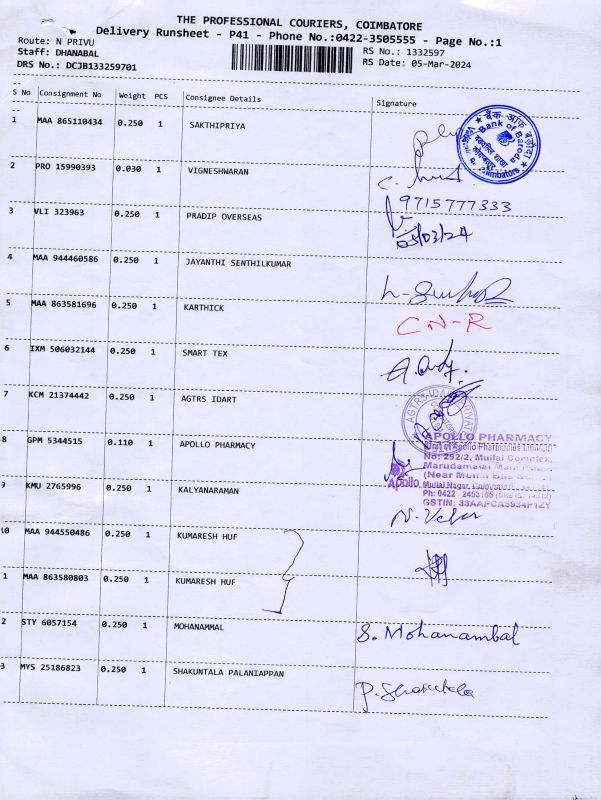 THE PROFESSIONAL COURIERS, COIMBATORE
Delivery Runsheet - P41 - Phone No.:0422-3505555 - Page No.:1
Route: N PRIVU
RS No.: 1332597
Staff: DHANABAL
RS Date: 05-Mar-2024
DRS No.: DCJB133259701
S No Consignment No Weight PCS Consignee Details Signature
1 MAA 865110434 0.250 1 SAKTHIPRIYA
बैंक ऑफ़ बड़ौदा
Bank of Baroda
2 PRO 15990393 0.030 1 VIGNESHWARAN
9715777333
3 VLI 323963 0.250 1 PRADIP OVERSEAS
05/03/24
4 MAA 944460586 0.250 1 JAYANTHI SENTHILKUMAR
5 MAA 863581696 0.250 1 KARTHICK
CN-R
6 IXM 506032144 0.250 1 SMART TEX
7 KCM 21374442 0.250 1 AGTRS IDART
8 GPM 5344515 0.110 1 APOLLO PHARMACY
APOLLO PHARMACY
(Unit of Apollo Pharmacies Limited)
No: 292/2, Mullai Complex,
Marudamalai Main
(Near Mullai Bus
Apollo Mullai Nagar,
Ph: 0422
GSTIN:
9 KMU 2765996 0.250 1 KALYANARAMAN
10 MAA 944550486 0.250 1 KUMARESH HUF
1 MAA 863580803 0.250 1 KUMARESH HUF
2 STY 6057154 0.250 1 MOHANAMMAL
S. Mohanambal
3 MYS 25186823 0.250 1 SHAKUNTALA PALANIAPPAN
P. Shakuntala